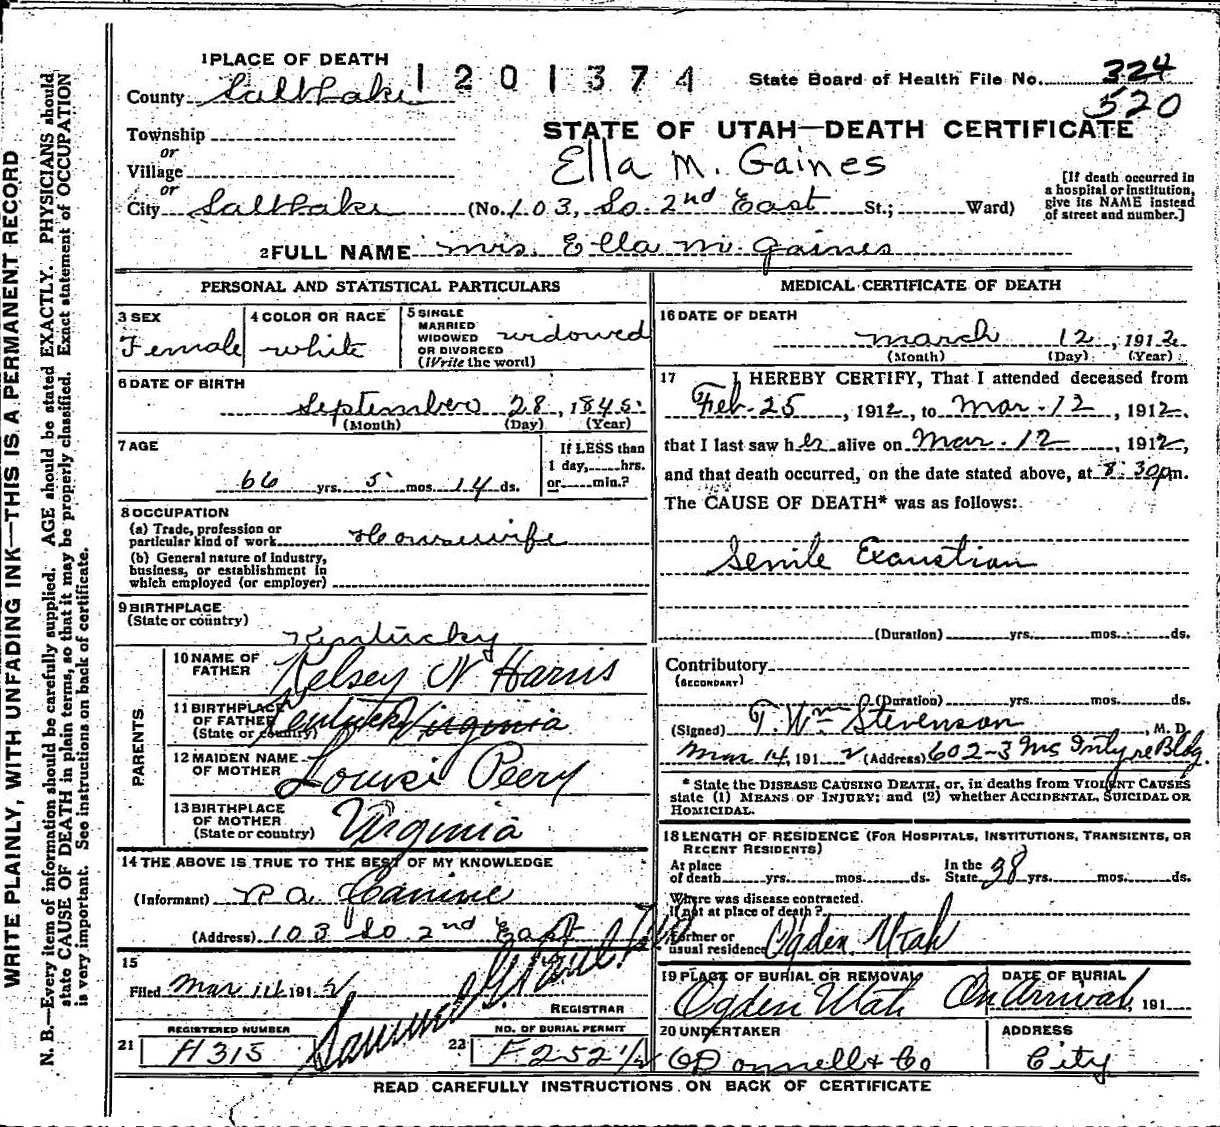 1 PLACE OF DEATH
1201374
State Board of Health File No. 324
520
County Salt Lake
STATE OF UTAH—DEATH CERTIFICATE
Township
or
Village
or
Ella M. Gaines
[If death occurred in a hospital or institution, give its NAME instead of street and number.]
City Salt Lake (No. 103, So. 2nd East St.; Ward)
2 FULL NAME Mrs. Ella M Gaines
PERSONAL AND STATISTICAL PARTICULARS
3 SEX
Female
4 COLOR OR RACE
white
5 SINGLE MARRIED WIDOWED OR DIVORCED (Write the word)
widowed
6 DATE OF BIRTH
September 28, 1845
(Month) (Day) (Year)
7 AGE
66 yrs. 5 mos. 14 ds.
If LESS than 1 day, hrs. or min.?
8 OCCUPATION
(a) Trade, profession or particular kind of work Housewife
(b) General nature of industry, business, or establishment in which employed (or employer)
9 BIRTHPLACE
(State or country)
Kentucky
PARENTS
10 NAME OF FATHER Kelsey N Harris
11 BIRTHPLACE OF FATHER (State or country) Kentucky Virginia
12 MAIDEN NAME OF MOTHER Louise Peery
13 BIRTHPLACE OF MOTHER (State or country) Virginia
14 THE ABOVE IS TRUE TO THE BEST OF MY KNOWLEDGE
(Informant) P.A. Canine
(Address) 103 So 2nd East
15
Filed Mar 14 1912
REGISTRAR
REGISTERED NUMBER
21 H315
NO. OF BURIAL PERMIT
22 F 252 1/2
MEDICAL CERTIFICATE OF DEATH
16 DATE OF DEATH
March 12, 1912
(Month) (Day) (Year)
17 I HEREBY CERTIFY, That I attended deceased from
Feb. 25, 1912, to Mar. 12, 1912,
that I last saw her alive on Mar. 12, 1912,
and that death occurred, on the date stated above, at 8:30pm.
The CAUSE OF DEATH* was as follows:
Senile Exaustian
(Duration) yrs. mos. ds.
Contributory
(SECONDARY)
(Duration) yrs. mos. ds.
(Signed) T. Wm Stevenson, M. D.
Mar 14, 1912 (Address) 602-3 McIntyre Bldg.
* State the DISEASE CAUSING DEATH, or, in deaths from VIOLENT CAUSES
state (1) MEANS OF INJURY; and (2) whether ACCIDENTAL, SUICIDAL OR
HOMICIDAL.
18 LENGTH OF RESIDENCE (FOR HOSPITALS, INSTITUTIONS, TRANSIENTS, OR
RECENT RESIDENTS)
At place of death yrs. mos. ds. In the State 38 yrs. mos. ds.
Where was disease contracted.
If not at place of death?
Former or usual residence Ogden, Utah
19 PLACE OF BURIAL OR REMOVAL
Ogden Utah
DATE OF BURIAL
On Arrival, 191
20 UNDERTAKER
O'Donnell & Co
ADDRESS
City
READ CAREFULLY INSTRUCTIONS ON BACK OF CERTIFICATE
WRITE PLAINLY, WITH UNFADING INK—THIS IS A PERMANENT RECORD
N. B.—Every item of information should be carefully supplied. AGE should be stated EXACTLY. PHYSICIANS should
state CAUSE OF DEATH in plain terms, so that it may be properly classified. Exact statement of OCCUPATION
is very important. See instructions on back of certificate.